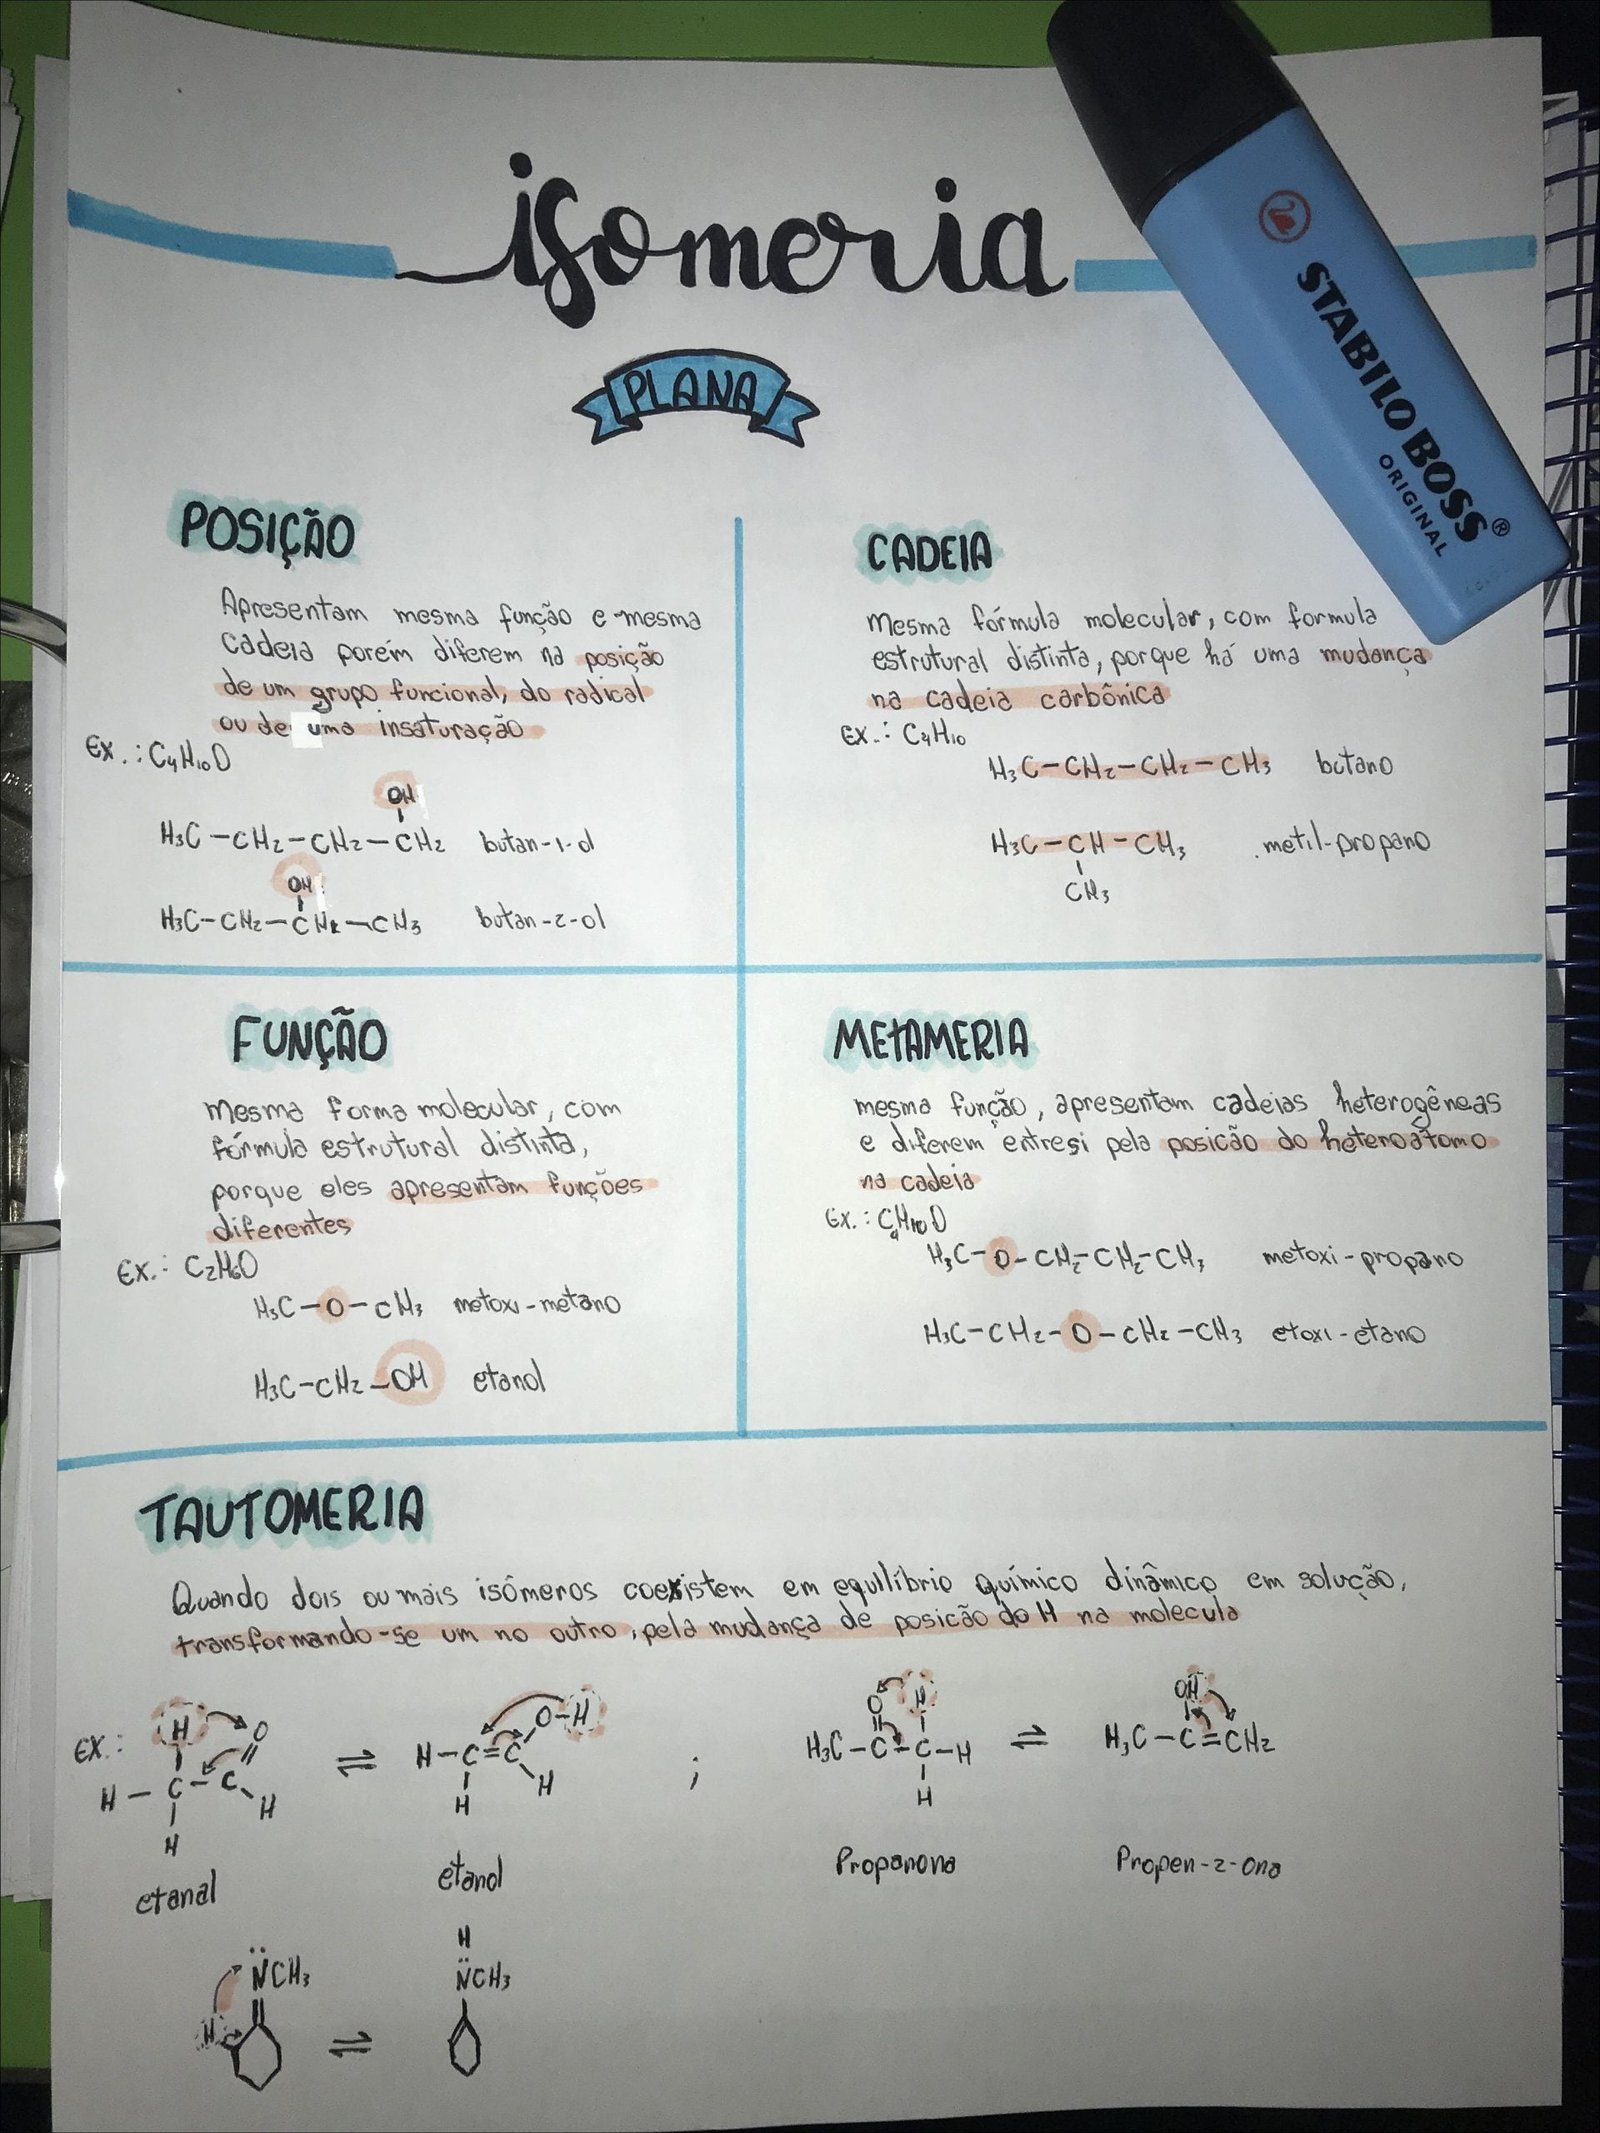 isomeria
PLANA
STABILO BOSS®
ORIGINAL
POSIÇÃO
Apresentam mesma função e mesma
cadeia porém diferem na posição
de um grupo funcional, do radical
ou de uma insaturação
Ex.: C4H10O
OH
H3C-CH2-CH2-CH2 butan-1-ol
OH
H3C-CH2-CH2-CH3 butan-2-ol
CADEIA
Mesma fórmula molecular, com formula
estrutural distinta, porque há uma mudança
na cadeia carbônica
Ex.: C4H10
H3C-CH2-CH2-CH3 butano
H3C-CH-CH3 metil-propano
CH3
FUNÇÃO
Mesma forma molecular, com
fórmula estrutural distinta,
porque eles apresentam funções
diferentes
Ex.: C2H6O
H3C-O-CH3 metoxi-metano
H3C-CH2-OH etanol
METAMERIA
mesma função, apresentam cadeias heterogêneas
e diferem entresi pela posicão do heteroátomo
na cadeia
Ex.: C4H10O
H3C-O-CH2-CH2-CH3 metoxi-propano
H3C-CH2-O-CH2-CH3 etoxi-etano
TAUTOMERIA
Quando dois ou mais isômeros coexistem em equilíbrio químico dinâmico em solução,
transformando-se um no outro, pela mudança de posicão do H na molecula
Ex.:
H O
H-C-C
H
H
etanal
⇌
O-H
H-C=C
H H
etanol
;
O H
H3C-C-C-H
H
Propanona
⇌
OH
H3C-C=CH2
Propen-2-ona
N̈CH3
H
⇌
H
N̈CH3